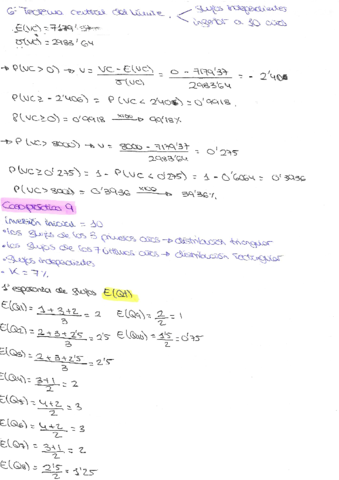 6. Teorema central del límite. < flujos independientes
inversión a 10 años
E(VC) = 7179'37
σ(VC) = 2983'64
→ P(VC>0) → V = VC - E(VC) / σ(VC) = 0 - 7179'37 / 2983'64 = - 2'406
P(VC ≥ - 2'406) = P(VC < 2'406) = 0'9918.
P(VC ≥ 0) = 0'9918 x100→ 99'18%
→ P(VC > 8000) → V = 8000 - 7179'37 / 2983'64 = 0'275
P(VC ≥ 0'275) = 1 - P(VC < 0'275) = 1 - 0'6064 = 0'3936
P(VC > 8000) = 0'3936 x100→ 39'36%
Caso práctico 9
inversión inicial = 10
• los flujos de los 3 primeros años → distribución triangular
• los flujos de los 7 últimos años → distribución rectangular
• flujos independientes
• K = 7%
1º esperanza de flujos E(Qt)
E(Q1) = 1+3+2 / 3 = 2 E(Q9) = 2/2 = 1
E(Q2) = 2+3+2'5 / 3 = 2'5 E(Q10) = 1'5/2 = 0'75
E(Q3) = 2+3+2'5 / 3 = 2'5
E(Q4) = 3+1 / 2 = 2
E(Q5) = 4+2 / 2 = 3
E(Q6) = 4+2 / 2 = 3
E(Q7) = 3+1 / 2 = 2
E(Q8) = 2'5 / 2 = 1'25